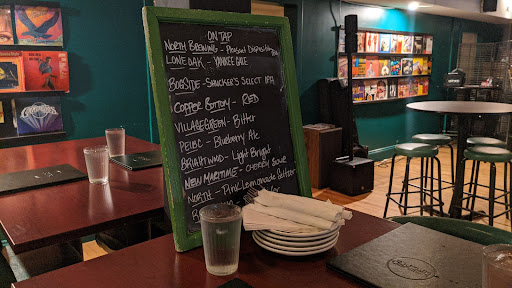 ON TAP
NORTH BREWING - PLEASANT
LONE OAK - YANKEE GALE
BOGSIDE - SHUCKER'S SELECT IPA
COPPER BOTTOM - RED
VILLAGEGREEN - Bitter
PEIBC - Blueberry Ale
BRIGHTWOOD - Light Bright
NEW MARITIME - CHERRY SOUR
NORTH - Pink Lemonade Seltzer